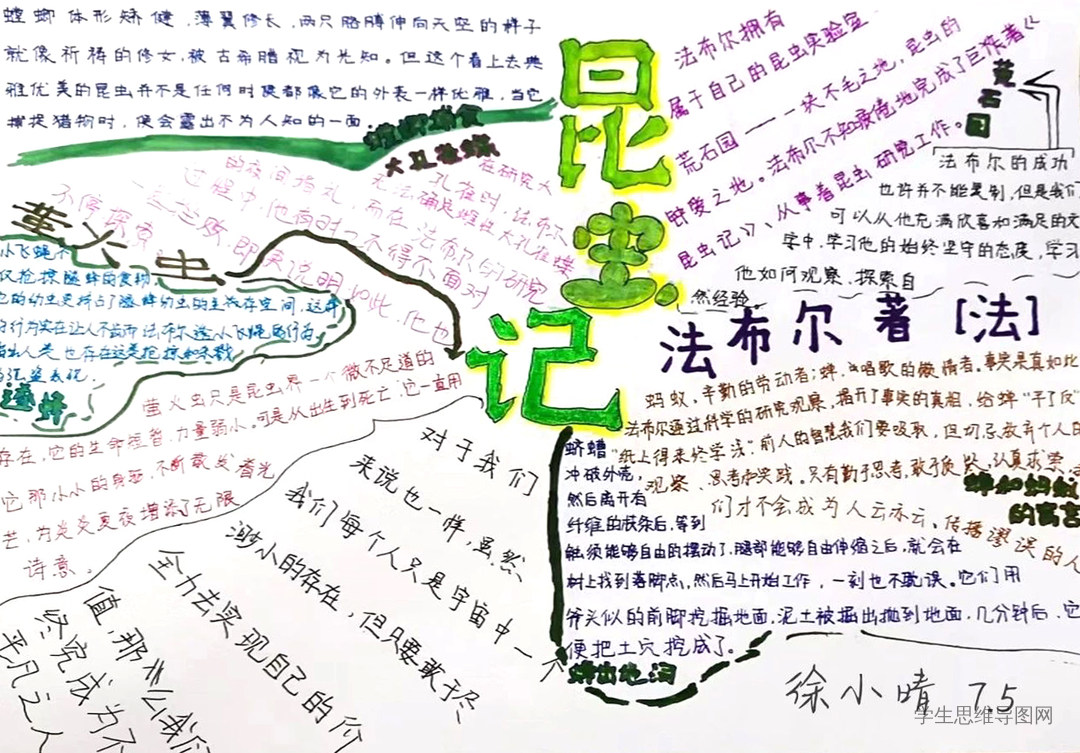 螳螂体形矫健，薄翼修长，两只胳膊伸向天空的样子
就像祈祷的修女，被古希腊视为先知。但这个看上去典
雅优美的昆虫并不是任何时候都像它的外表一样优雅，当它
捕捉猎物时，便会露出不为人知的一面。
螳螂捕食
昆虫记
法布尔拥有
属于自己的昆虫实验室
荒石园——一块不毛之地，昆虫的
钟爱之地。法布尔不知疲倦地完成了巨作著《
昆虫记》》，从事着昆虫研究工作。
荒石园
法布尔的成功
也许并不能复制，但是我们
可以从他充满欣喜和满足的文
字中，学习他的始终坚守的态度，学习
他如何观察、探索自
然经验。
大孔雀蝶
在研究大
孔雀时，法布尔
无法确定雄性大孔雀蝶
的夜间婚礼，而在法布尔的研究
过程中，他有时不得不面对
一些失败，即使说明如此，他也
不停探索
萤火虫
小飞蝇不
仅抢掠隧蜂的食物
它的幼虫更挤占了隧蜂幼虫的生存空间，这种
的行为实在让人不齿
也存在这是抢掠
隧蜂
萤火虫只是昆虫界一个微不足道的
存在，它的生命短暂，力量弱小，可是从出生到死亡，它一直用
它那小小的身躯，不断散发着光
芒，为炎炎夏夜增添了无限
诗意。
对于我们
来说也一样，虽然，
我们每个人只是宇宙中一个
渺小的存在，但只要敢于
全力去实现自己的价
值，那么我们
终究成为不
平凡之人
法布尔 著 [法]
蚂蚁，辛勤的劳动者；蝉，唱歌的懒惰者。事实果真如此
法布尔通过科学的研究观察，揭开了事实的真相，给蝉“平了反”
“纸上得来终学浅”前人的智慧我们要吸取，但切忌放弃个人的
观察、思考和实践。只有勤于思考，敢于质疑、认真求索，
们才不会成为人云亦云、传播谬误的人
蝉和蚂蚁
的寓言
蛴螬
冲破外壳，
然后离开有
纤维的
等到
触须能够自由的摆动了，腿部能够自由伸缩之后，就会在
树上找到落脚点，然后马上开始工作，一刻也不耽误。它们用
斧头似的前脚挖掘地面，泥土被掘出抛到地面，几分钟后，它
便把土穴挖成了。
蝉出地洞
徐小晴 7.5
学生思维导图网